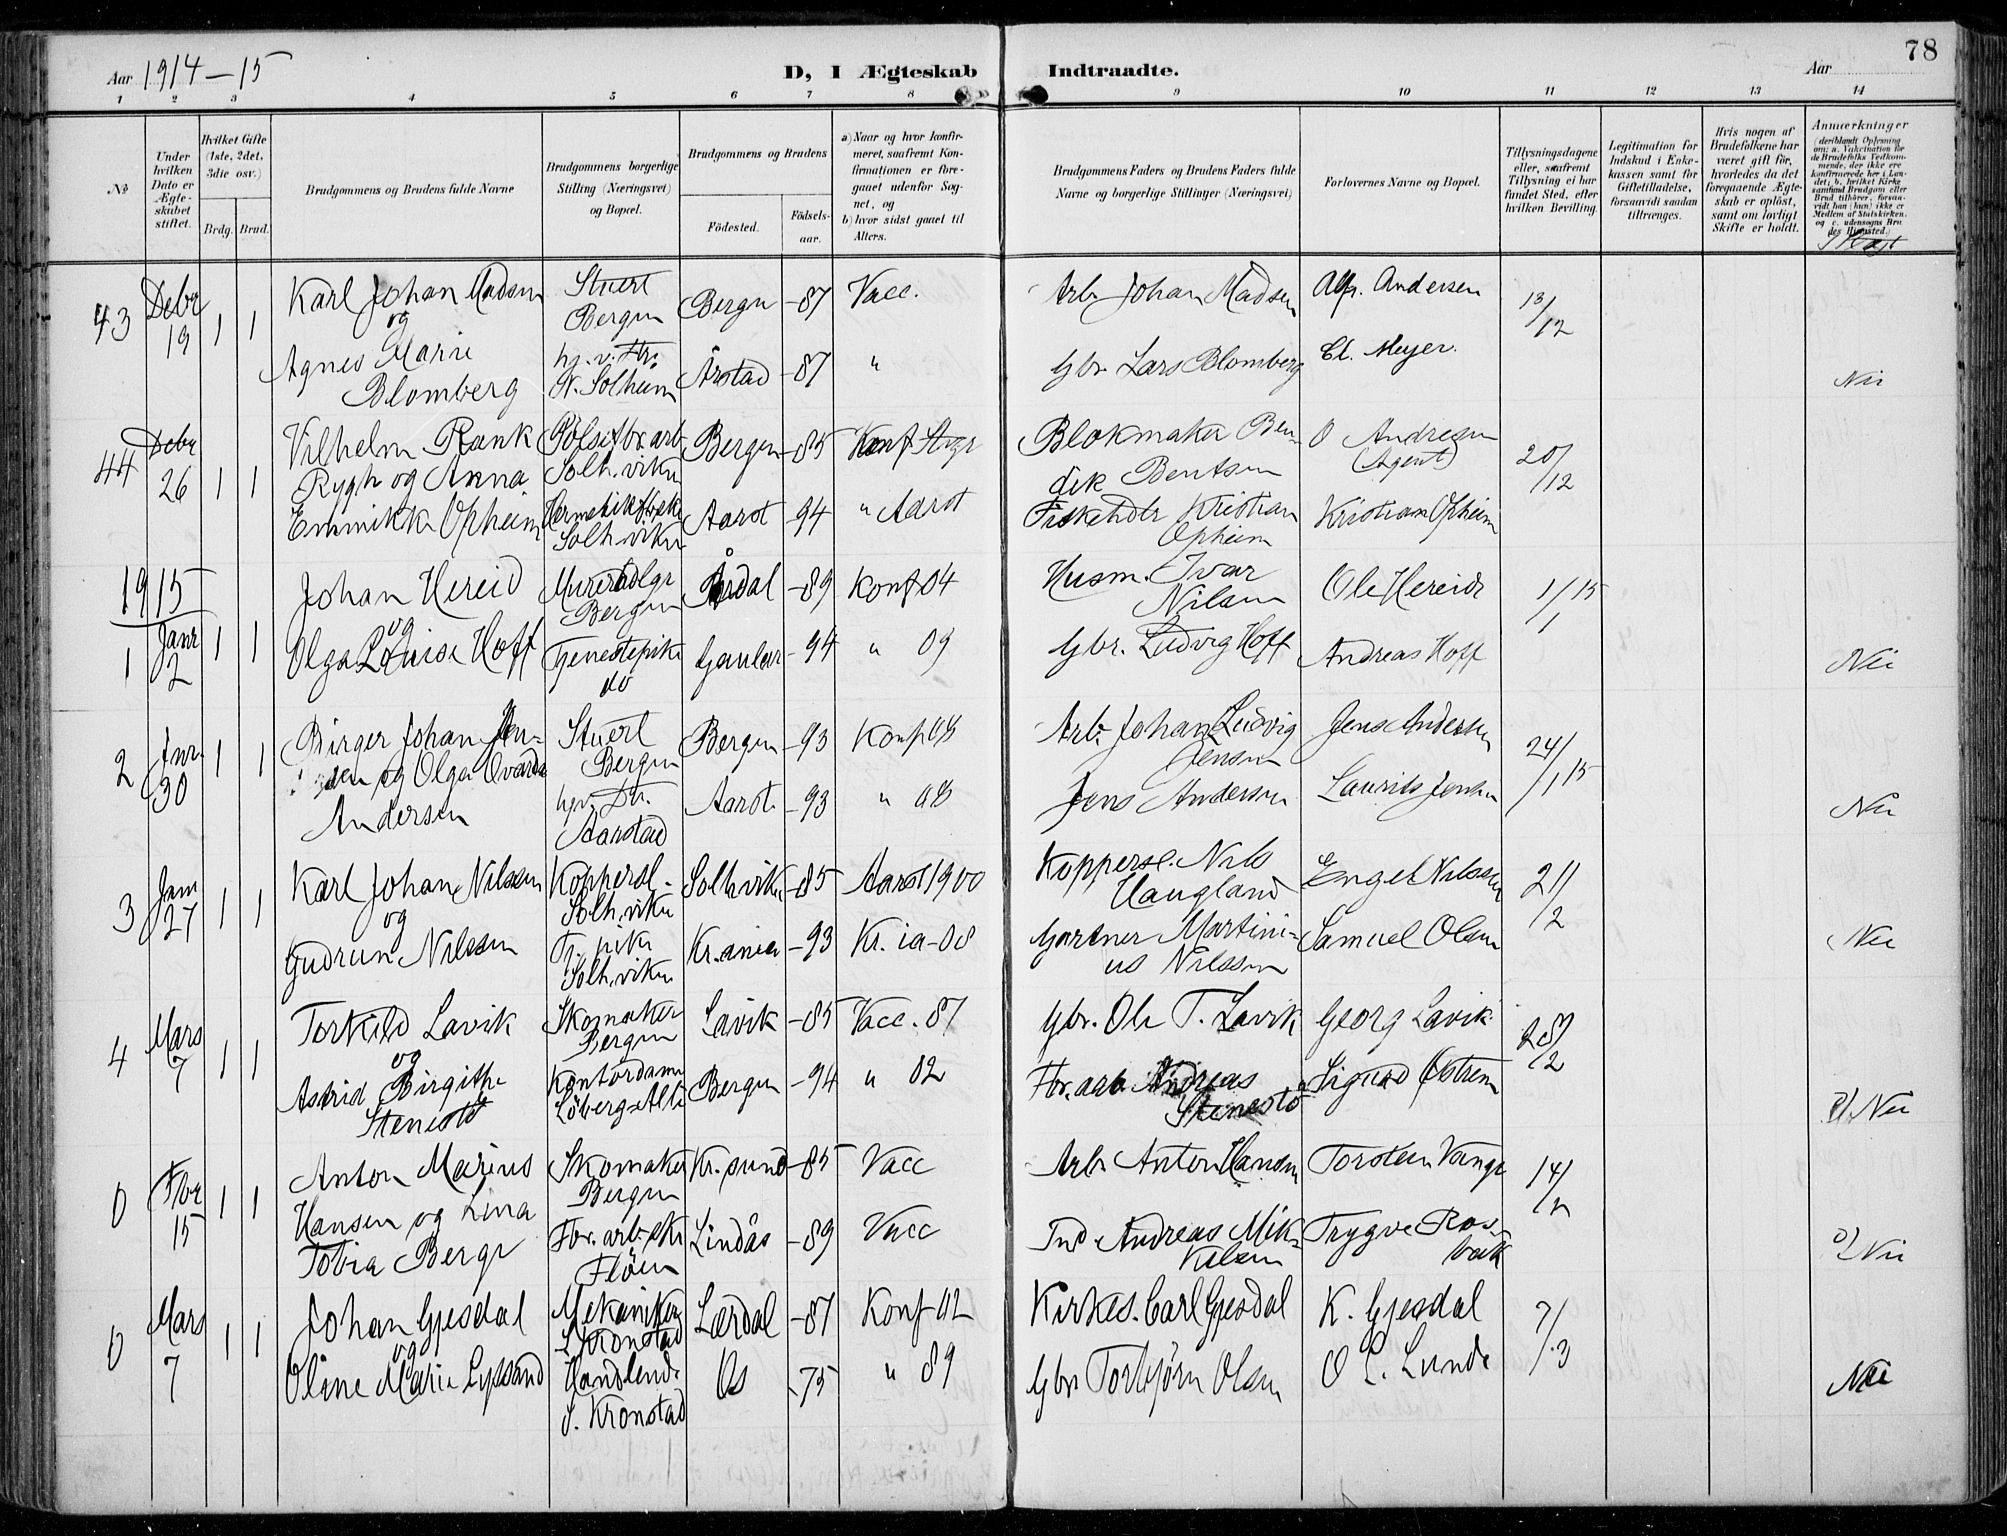 78
Aar 1914-15
D, I Ægteskab Indtraadte.
Aar
1 2 3 4 5 6 7 8 9 10 11 12 13 14
No
Under hvilken Dato er Ægteskabet stiftet.
Hvilket Gifte (1ste, 2det, 3die osv.)
Brdg. Brud.
Brudgommens og Brudens fulde Navne
Brudgommens borgerlige Stilling (Næringsvei) og Bopæl.
Brudgommens og Brudens
Födested.
Födselsaar.
a) Naar og hvor konfirmeret, saafremt Konfirmationen er foregaaet udenfor Sognet, og
b) hvor sidst gaaet til Alters.
Brudgommens Faders og Brudens Faders fulde Navne og borgerlige Stillinger (Næringsvei)
Forlovernes Navne og Bopæl.
Tillysningsdagene eller, saafremt Tillysning ei har fundet Sted, efter hvilken Bevilling.
Legitimation for Indskud i Enkekassen samt for Giftetilladelse, forsaavidt saadan tiltrænges.
Hvis nogen af Brudefolkene har været gift för, hvorledes da det foregaaende Ægteskab er oplöst, samt om lovligt Skifte er holdt.
Anmærkninger
43 Debr 19 1 1 Karl Johan Madsen Stuert Bergen Bergen -87 Vacc. Arb. Johan Madsen Alfr. Andersen 13/12
og Agnes Marie Blomberg hj. v. Str. N. Solheim Årstad -87 " Gbr. Lars Blomberg Cl. Meyer. Nei
44 Debr 26 1 1 Vilhelm Rank Rygh og Anna Solh.viken Bergen -85 Konf Blokmaker Bendik Bentsen O Andresen (Agent) 20/12
Opheim Solh.viken Aarst -94 " Aarst Fiskehdlr Kristian Opheim Kristian Opheim
1915
1 Janr 2 1 1 Johan Hereid Bergen Årdal -89 Konf 04 Husm. Ivar Nilsen Ole Hereide 1/1 15
og Olga Louise Hoff Tjenestepike do Gaular -94 " 09 Gbr. Ludvig Hoff Andreas Hoff Nei
2 Jnr. 30 1 1 Birger Johan Jensen og Olga Stuert Bergen Bergen -93 Konf 08 Arb. Johan Ludvig Jensen Jens Andersen 24/1 15
Andersen Aarstad Aarst. -93 " 08 Jens Andersen Laurits Jensen Nei
3 Jan 27 1 1 Karl Johan Nilssen Koppersl. Solh.viken Solh.viken -85 Aarst 1900 Koppersl. Nils Haugland Engel Nilssen 21/2
og Gudrun Nilssen Tj. pike Solh.viken Kr.ania -93 Kr. ia -08 Gartner Martinius Nilssen Samuel Olsen Nei
4 Mars 7 1 1 Torkild Lavik Skomaker Bergen Lavik -85 Vacc. 87 Gbr. Ole T. Lavik Georg Lavik 28/2
og Astrid Birgithe Stenestö Kontordame Löberg-Allé Bergen -94 " 02 Fbr. arb. Andreas Stenestö Sigurd Östrem Nei
0 Fbr 15 1 1 Anton Marius Hansen og Lina Skomaker Bergen Kr.sund -85 Vacc Arb. Anton Hansen Torstein Vange 14/2
Tobia Berge Fbr. arb.ske Flöen Lindås -89 Vacc Ind. Andreas Mikkelsen Trygve Rosvak Nei
0 Mars 7 1 1 Johan Gjesdal Mekaniker S. Kronstad Lærdal -87 Konf 02 Kirkes. Carl Gjesdal K. Gjesdal 7/3
og Oline Marie Lyssand Handlende S. Kronstad Os -75 " 89 Gbr Torbjørn Olsen O L. Lunde Nei